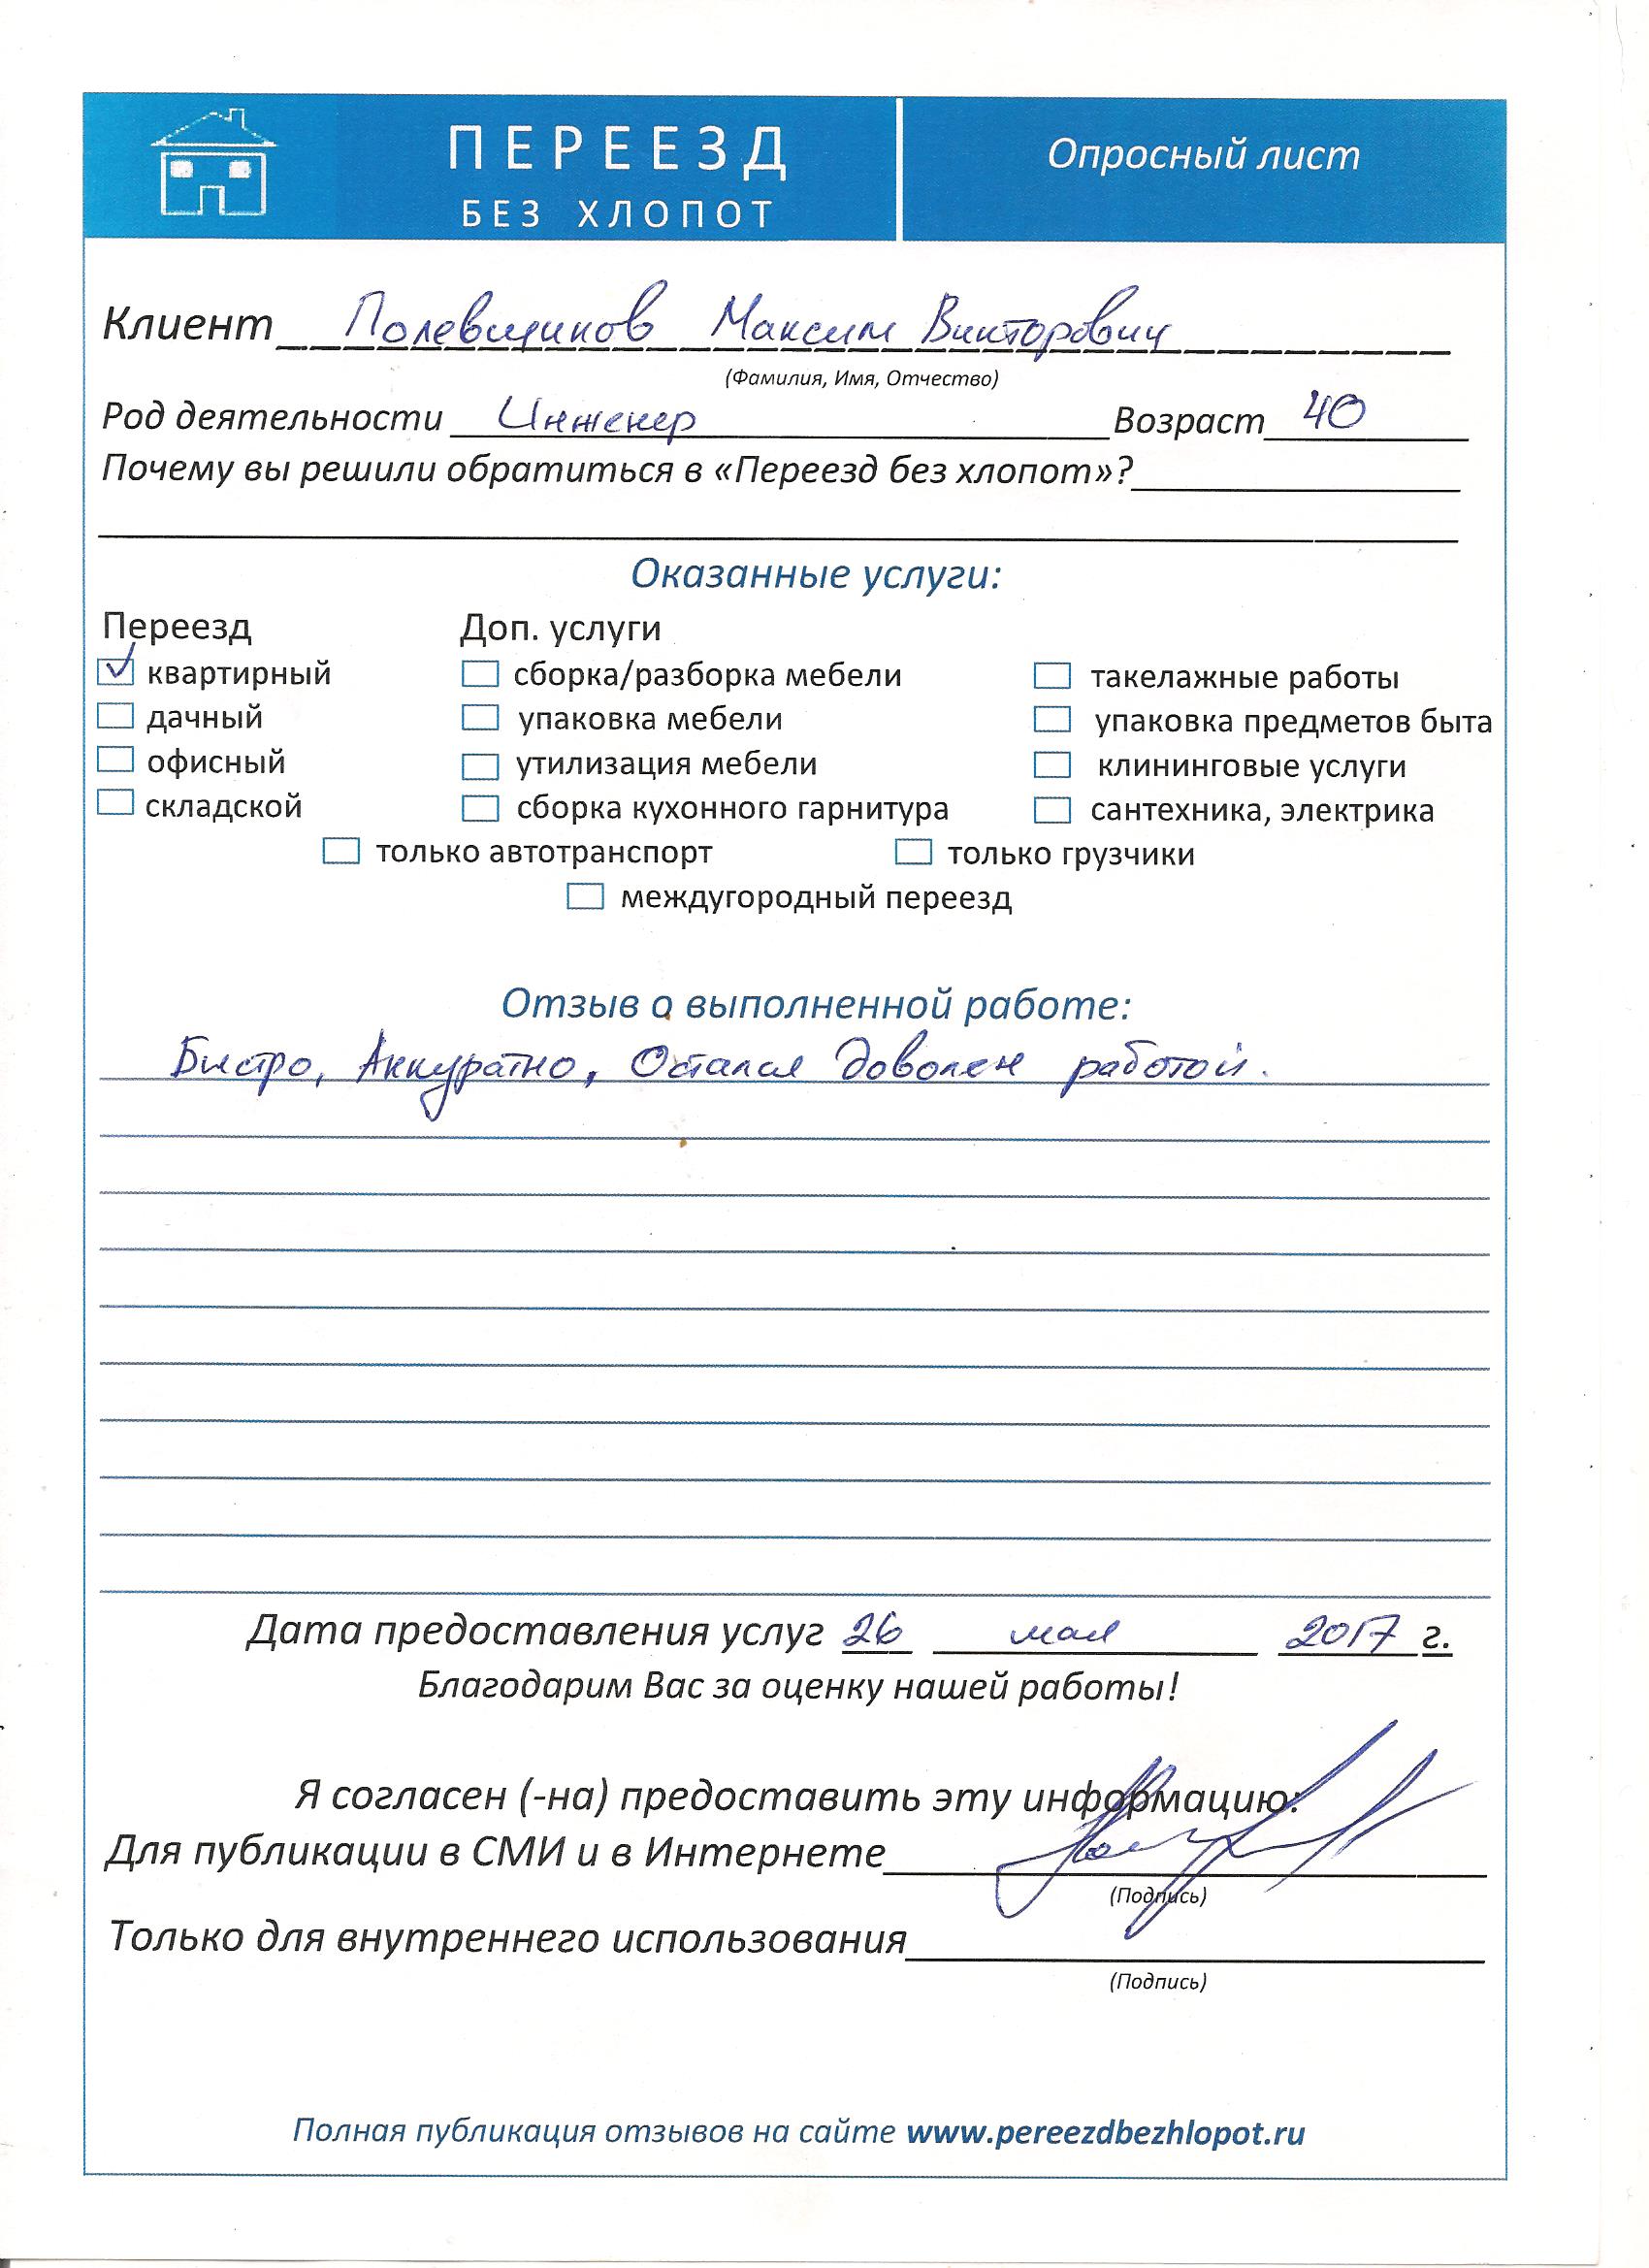 ПЕРЕЕЗД
БЕЗ ХЛОПОТ
Опросный лист
Клиент Полевщиков Максим Викторович
(Фамилия, Имя, Отчество)
Род деятельности Инженер Возраст 40
Почему вы решили обратиться в «Переезд без хлопот»?
Оказанные услуги:
Переезд Доп. услуги
квартирный сборка/разборка мебели такелажные работы
дачный упаковка мебели упаковка предметов быта
офисный утилизация мебели клининговые услуги
складской сборка кухонного гарнитура сантехника, электрика
только автотранспорт только грузчики
междугородный переезд
Отзыв о выполненной работе:
Быстро, Аккуратно, Остался доволен работой.
Дата предоставления услуг 26 мая 2017 г.
Благодарим Вас за оценку нашей работы!
Я согласен (-на) предоставить эту информацию:
Для публикации в СМИ и в Интернете
(Подпись)
Только для внутреннего использования
(Подпись)
Полная публикация отзывов на сайте www.pereezdbezhlopot.ru